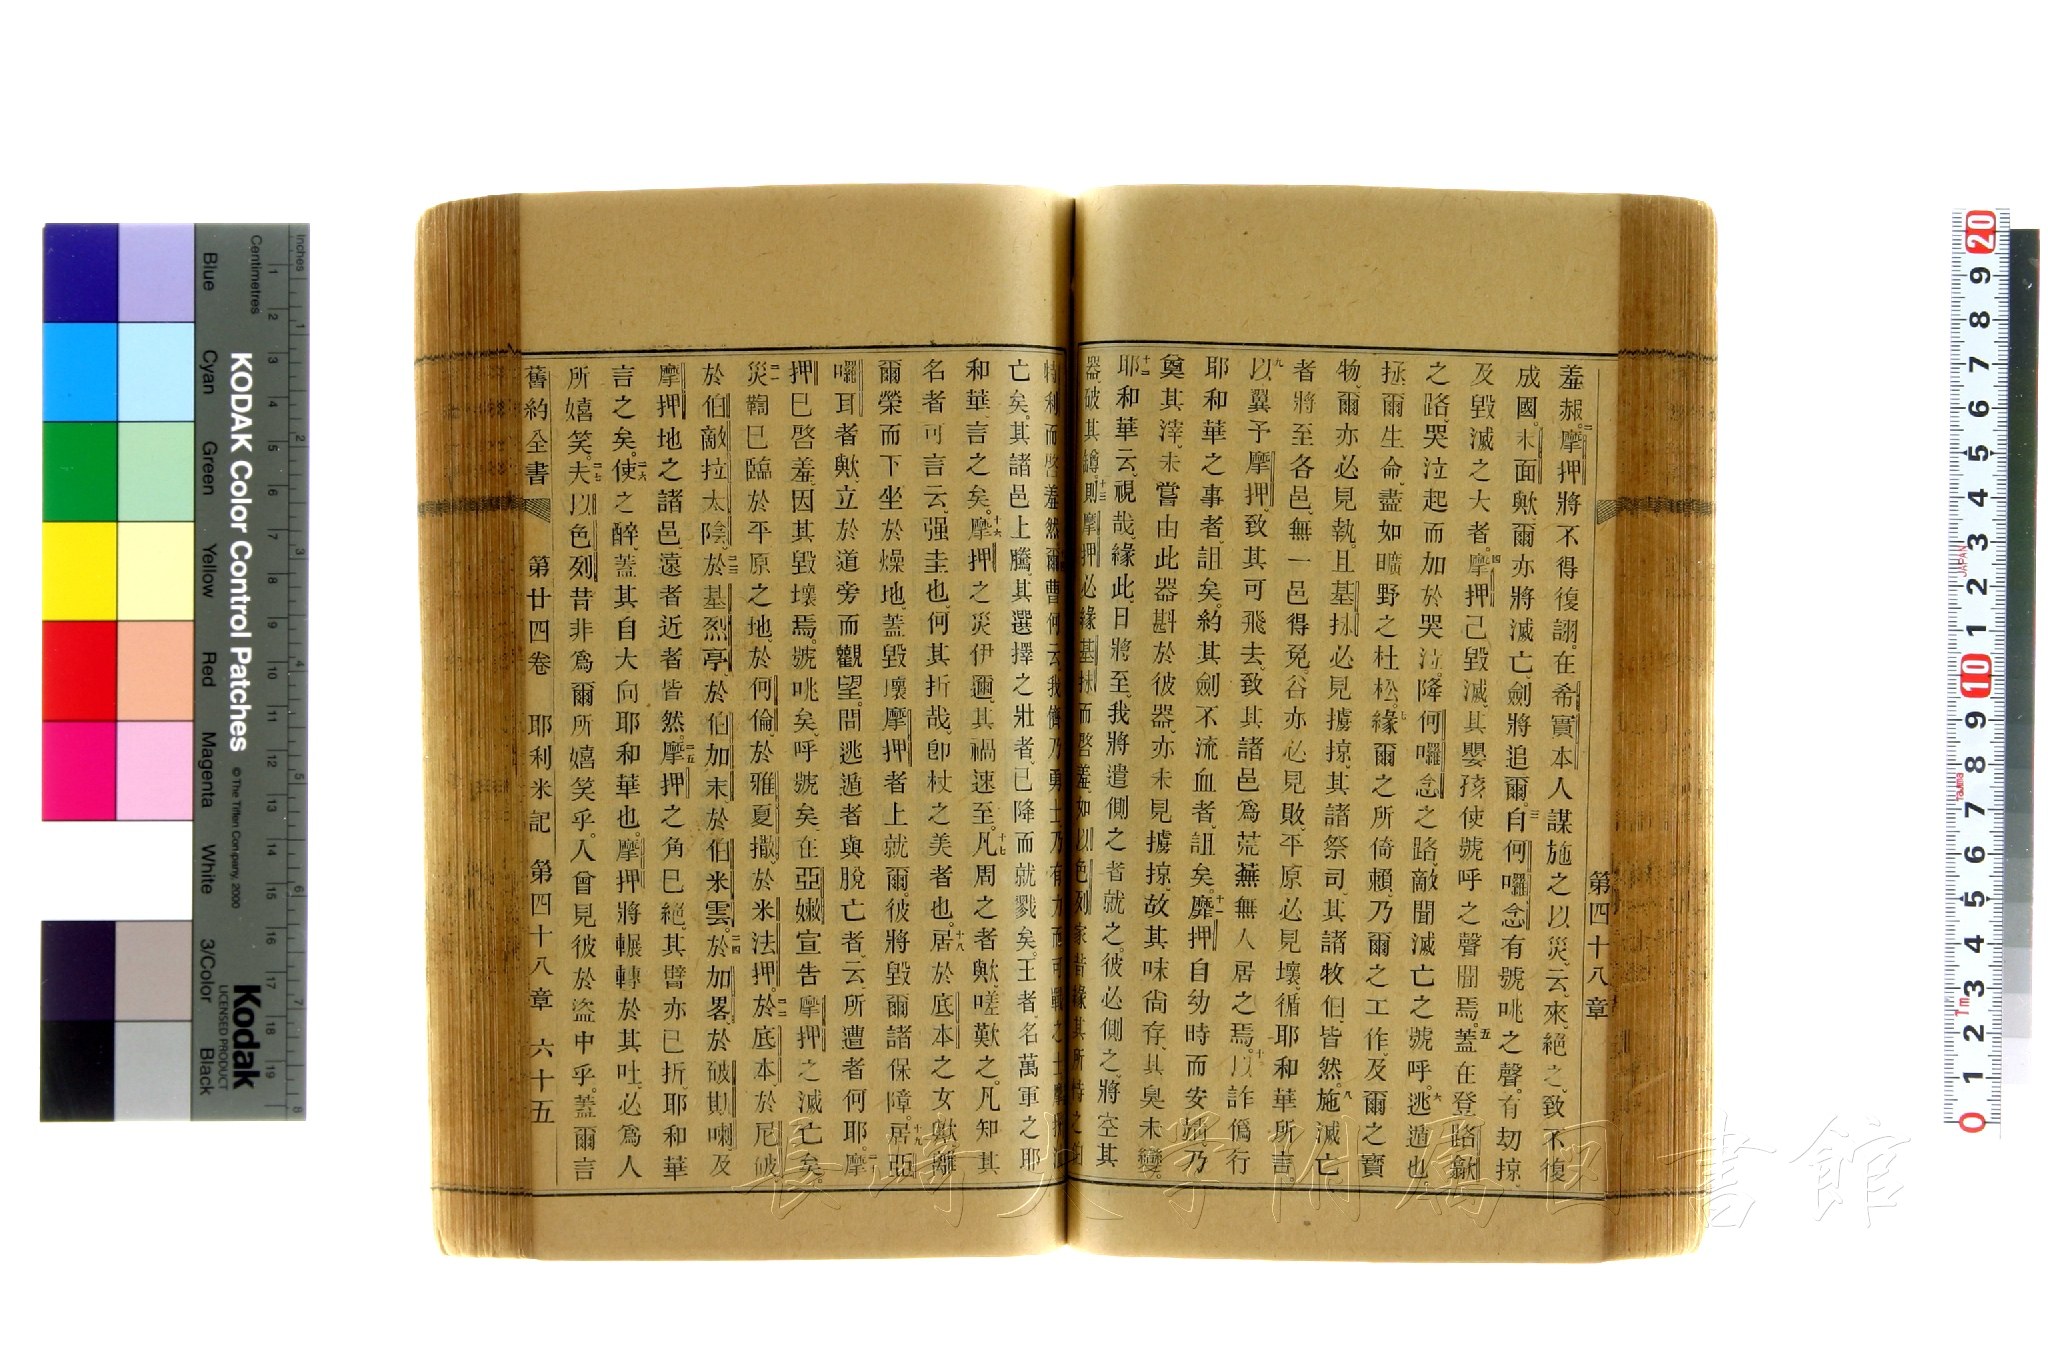 第四十八章
羞赧。二摩押將不得復詡。在希實本人謀施之以災、云、來、絕之、致不復
成國。末面歟、爾亦將滅亡、劍將追爾。三自何囉念有號咷之聲、有刧掠、
及毀滅之大者。四摩押已毀滅、其嬰孩使號呼之聲聞焉。五蓋在登路歙
之路、哭泣起而加於哭泣。降何囉念之路、敵聞滅亡之號呼。六逃遁也、
拯爾生命、盡如曠野之杜松。七緣爾之所倚賴、乃爾之工作、及爾之寶
物、爾亦必見執。且基抹必見擄掠、其諸祭司、其諸牧伯、皆然。八施滅亡
者將至各邑、無一邑得免、谷亦必見敗、平原必見壞、循耶和華所言。
九以翼予摩押、致其可飛去、致其諸邑爲荒蕪無人居之焉。十以詐僞行
耶和華之事者、詛矣。約其劍不流血者、詛矣。十一摩押自幼時而安、乃
奠其滓、未嘗由此器斟於彼器、亦未見擄掠、故其味尚存、其臭未變。
十二耶和華云、視哉、緣此、日將至、我將遣側之者就之。彼必側之、將空其
器、破其罇。十三則摩押必緣基抹而啓羞、如以色列家昔緣其所恃之伯
特利而啓羞然爾曹何云、我儕乃勇士、乃有力而可戰之士摩押
亡矣。其諸邑上騰、其選擇之壯者、已降而就戮矣。王者、名萬軍之耶
和華言之矣。十六摩押之災伊邇、其禍速至。十七凡周之者歟、嗟歎之。凡知其
名者可言云、强圭也、何其折哉、卽杖之美者也。十八居於底本之女歟、離
爾榮而下坐於燥地、蓋毀壞摩押者上就爾。彼將毀爾諸保障。十九居亞
囉耳者歟、立於道旁而觀望。問逃遁者與脫亡者、云、所遭者何耶。二十摩
押已啓羞、因其毀壞焉。號咷矣、呼號矣、在亞嫩宣告摩押之滅亡矣。
二一災罰已臨於平原之地、於何倫、於雅夏撒、於米法押。二二於底本、於尼破、
於伯敵拉太陰。二三於基烈亭、於伯加末、於伯米雲。二四於加畧、於破斯喇、及
摩押地之諸邑、遠者近者皆然。二五摩押之角已絕、其臂亦已折、耶和華
言之矣。二六使之醉、蓋其自大向耶和華也。摩押將輾轉於其吐、必爲人
所嬉笑。二七夫以色列昔非爲爾所嬉笑乎。人曾見彼於盜中乎。蓋爾言
舊約全書 第廿四卷 耶利米記 第四十八章 六十五
KODAK Color Control Patches
©The Tiffen Company, 2000
Kodak
LICENSED PRODUCT
Inches
Centimetres
Blue Cyan Green Yellow Red Magenta White 3/Color Black
長崎大学附属図書館